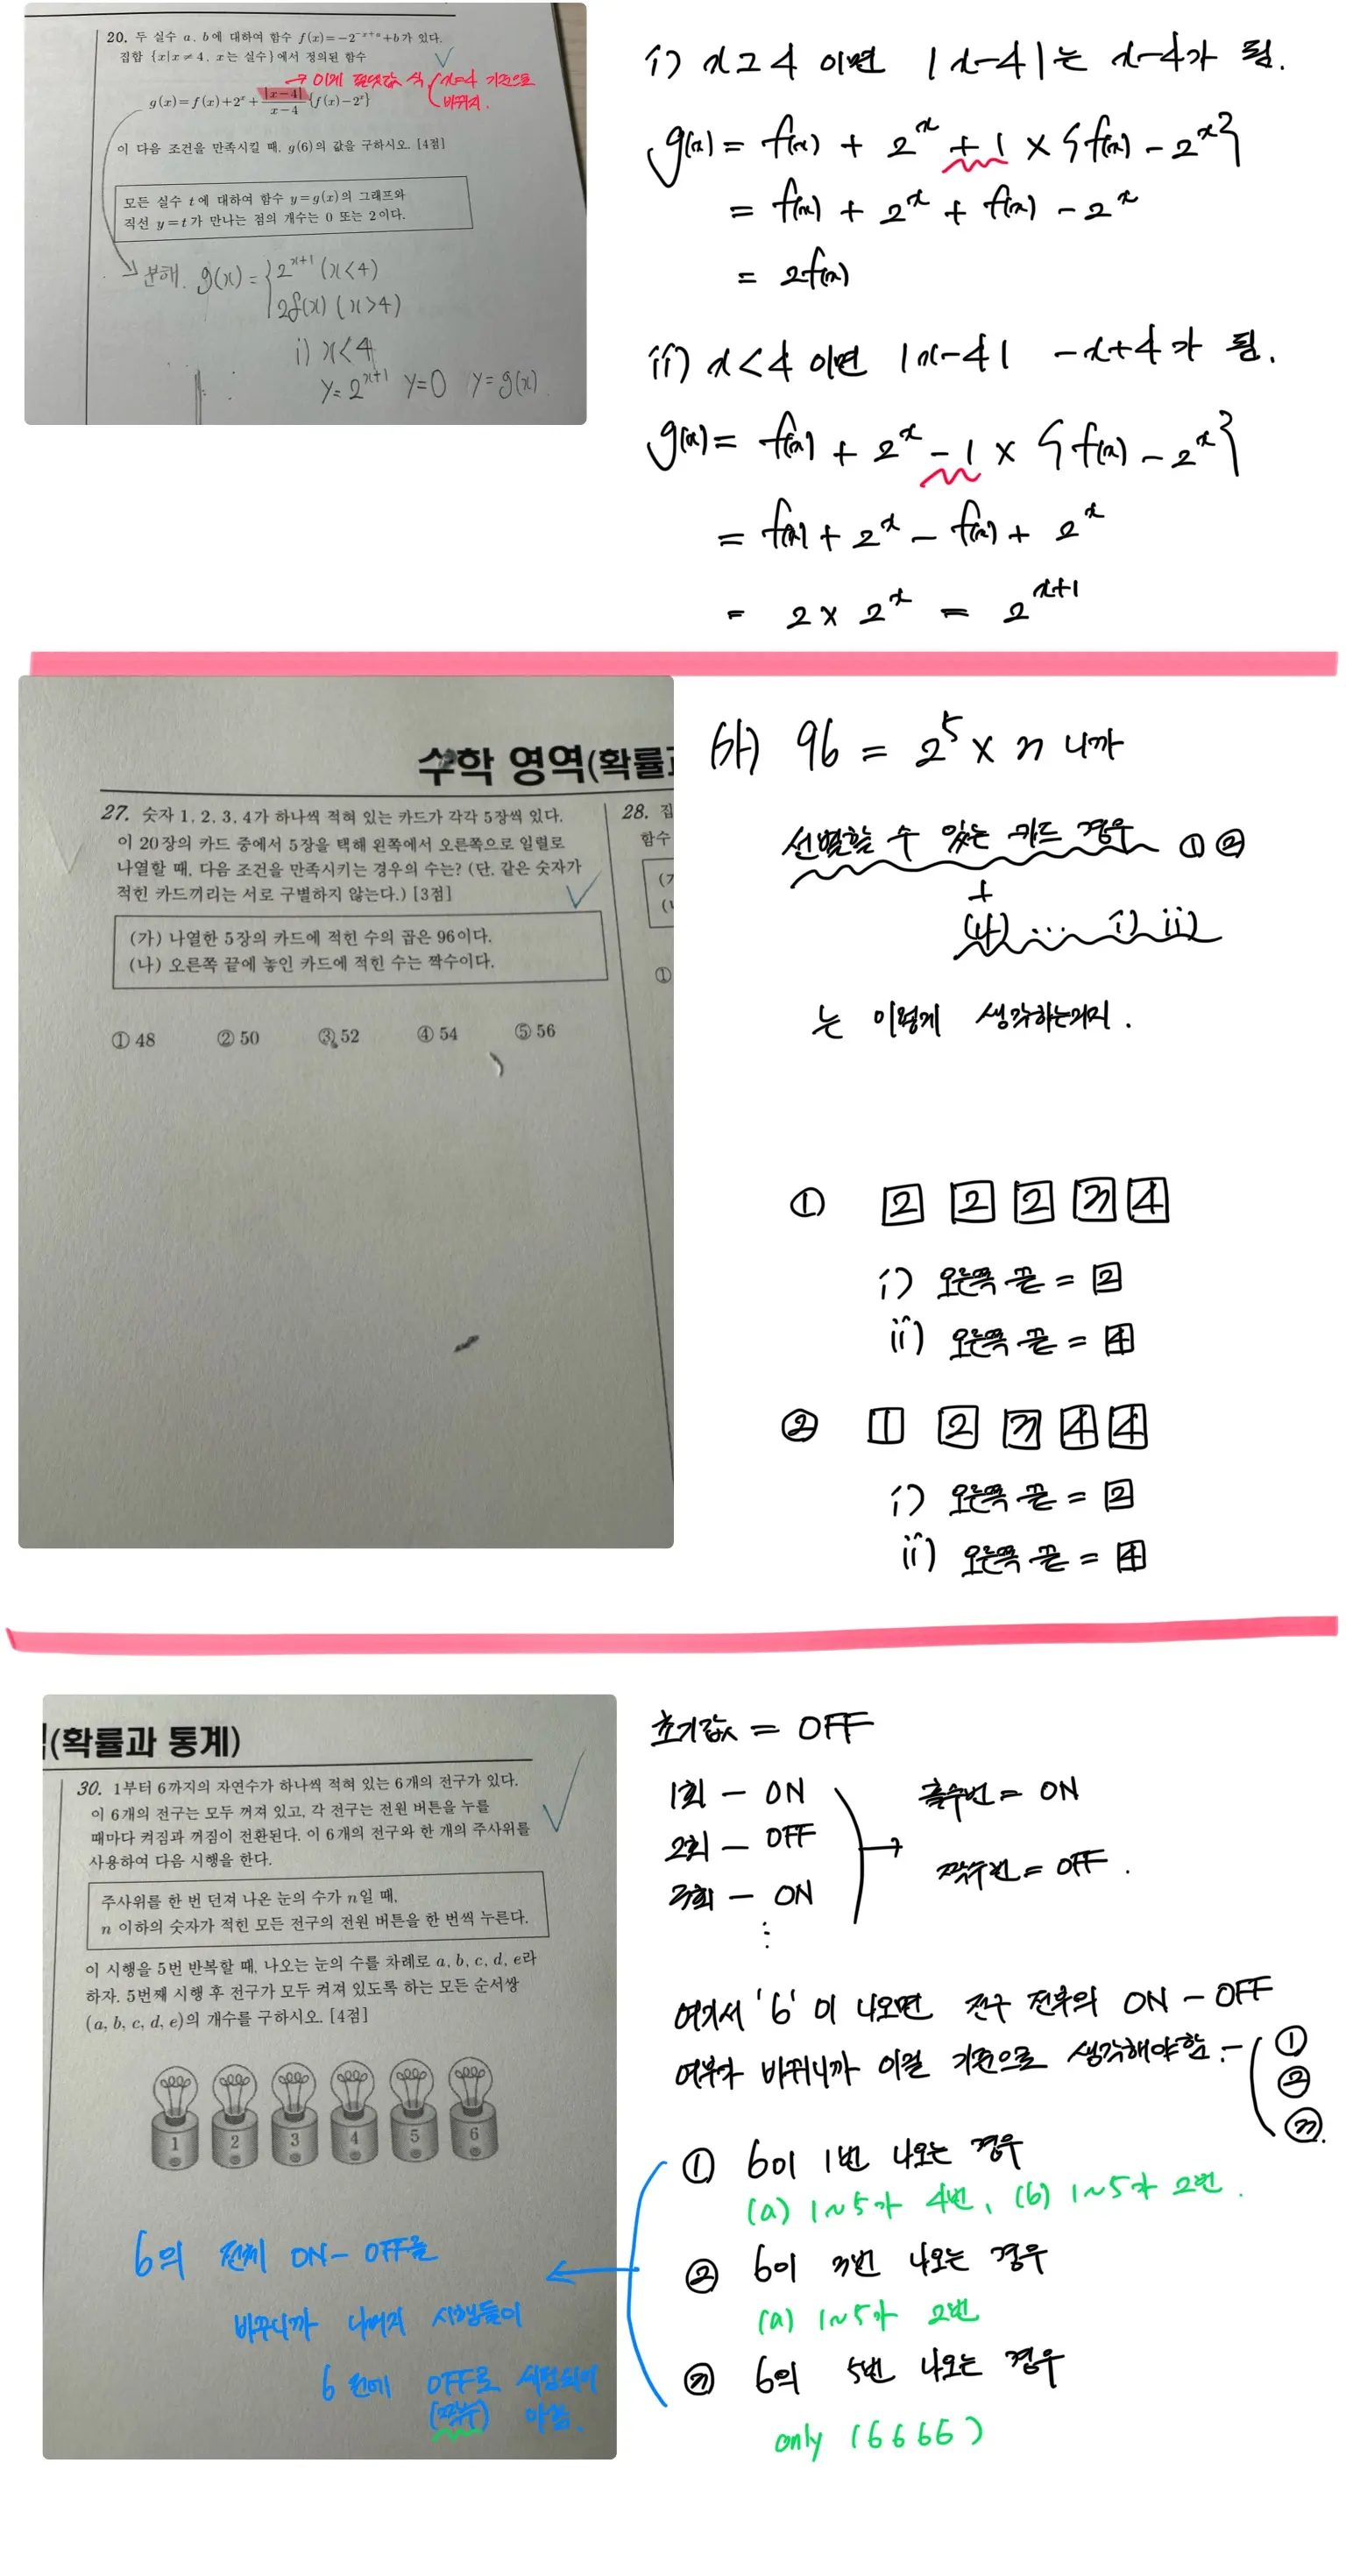 20. 두 실수 a, b에 대하여 함수 f(x)=-2^{-x+a}+b가 있다.
집합 {x|x≠4, x는 실수}에서 정의된 함수
→ 이게 절댓값 식 x=4 기준으로
바뀌지.
g(x)=f(x)+2^x+|x-4|/(x-4){f(x)-2^x}
이 다음 조건을 만족시킬 때, g(6)의 값을 구하시오. [4점]
모든 실수 t에 대하여 함수 y=g(x)의 그래프와
직선 y=t가 만나는 점의 개수는 0 또는 2이다.
분해. g(x)= 2^{x+1} (x<4)
2f(x) (x>4)
i) x<4
y=2^{x+1} y=0 y=g(x)
i) x≥4 이면 |x-4|는 x-4가 됨.
g(x) = f(x) + 2^x + 1 × {f(x) - 2^x}
= f(x) + 2^x + f(x) - 2^x
= 2f(x)
ii) x<4 이면 |x-4| -x+4가 됨.
g(x) = f(x) + 2^x - 1 × {f(x) - 2^x}
= f(x) + 2^x - f(x) + 2^x
= 2 × 2^x = 2^{x+1}
수학 영역(확률과
27. 숫자 1, 2, 3, 4가 하나씩 적혀 있는 카드가 각각 5장씩 있다.
이 20장의 카드 중에서 5장을 택해 왼쪽에서 오른쪽으로 일렬로
나열할 때, 다음 조건을 만족시키는 경우의 수는? (단, 같은 숫자가
적힌 카드끼리는 서로 구별하지 않는다.) [3점]
(가) 나열한 5장의 카드에 적힌 수의 곱은 96이다.
(나) 오른쪽 끝에 놓인 카드에 적힌 수는 짝수이다.
① 48 ② 50 ③ 52 ④ 54 ⑤ 56
28. 집
함수
(가
(나
①
(가) 96 = 2^5 × 3 니까
선별할 수 있는 카드 경우 ① ②
+
(나) ... i) ii)
는 이렇게 생각하는거지.
① 2 2 2 3 4
i) 오른쪽 끝 = 2
ii) 오른쪽 끝 = 4
② 1 2 3 4 4
i) 오른쪽 끝 = 2
ii) 오른쪽 끝 = 4
(확률과 통계)
30. 1부터 6까지의 자연수가 하나씩 적혀 있는 6개의 전구가 있다.
이 6개의 전구는 모두 꺼져 있고, 각 전구는 전원 버튼을 누를
때마다 켜짐과 꺼짐이 전환된다. 이 6개의 전구와 한 개의 주사위를
사용하여 다음 시행을 한다.
주사위를 한 번 던져 나온 눈의 수가 n일 때,
n 이하의 숫자가 적힌 모든 전구의 전원 버튼을 한 번씩 누른다.
이 시행을 5번 반복할 때, 나오는 눈의 수를 차례로 a, b, c, d, e라
하자. 5번째 시행 후 전구가 모두 켜져 있도록 하는 모든 순서쌍
(a, b, c, d, e)의 개수를 구하시오. [4점]
1 2 3 4 5 6
6의 전체 ON-OFF를
바꾸니까 나머지 시행들이
6 전에 OFF로
(짝수)
초기값 = OFF
1회 - ON
2회 - OFF
3회 - ON
⋮
→ 홀수번 = ON
짝수번 = OFF.
여기서 '6'이 나오면 전구 전부의 ON-OFF
여부가 바뀌니까 이걸 기준으로 생각해야함. - ① ② ③.
① 6이 1번 나오는 경우
(a) 1~5가 4번, (b) 1~5가 2번.
② 6이 3번 나오는 경우
(a) 1~5가 2번
③ 6의 5번 나오는 경우
only (6666)